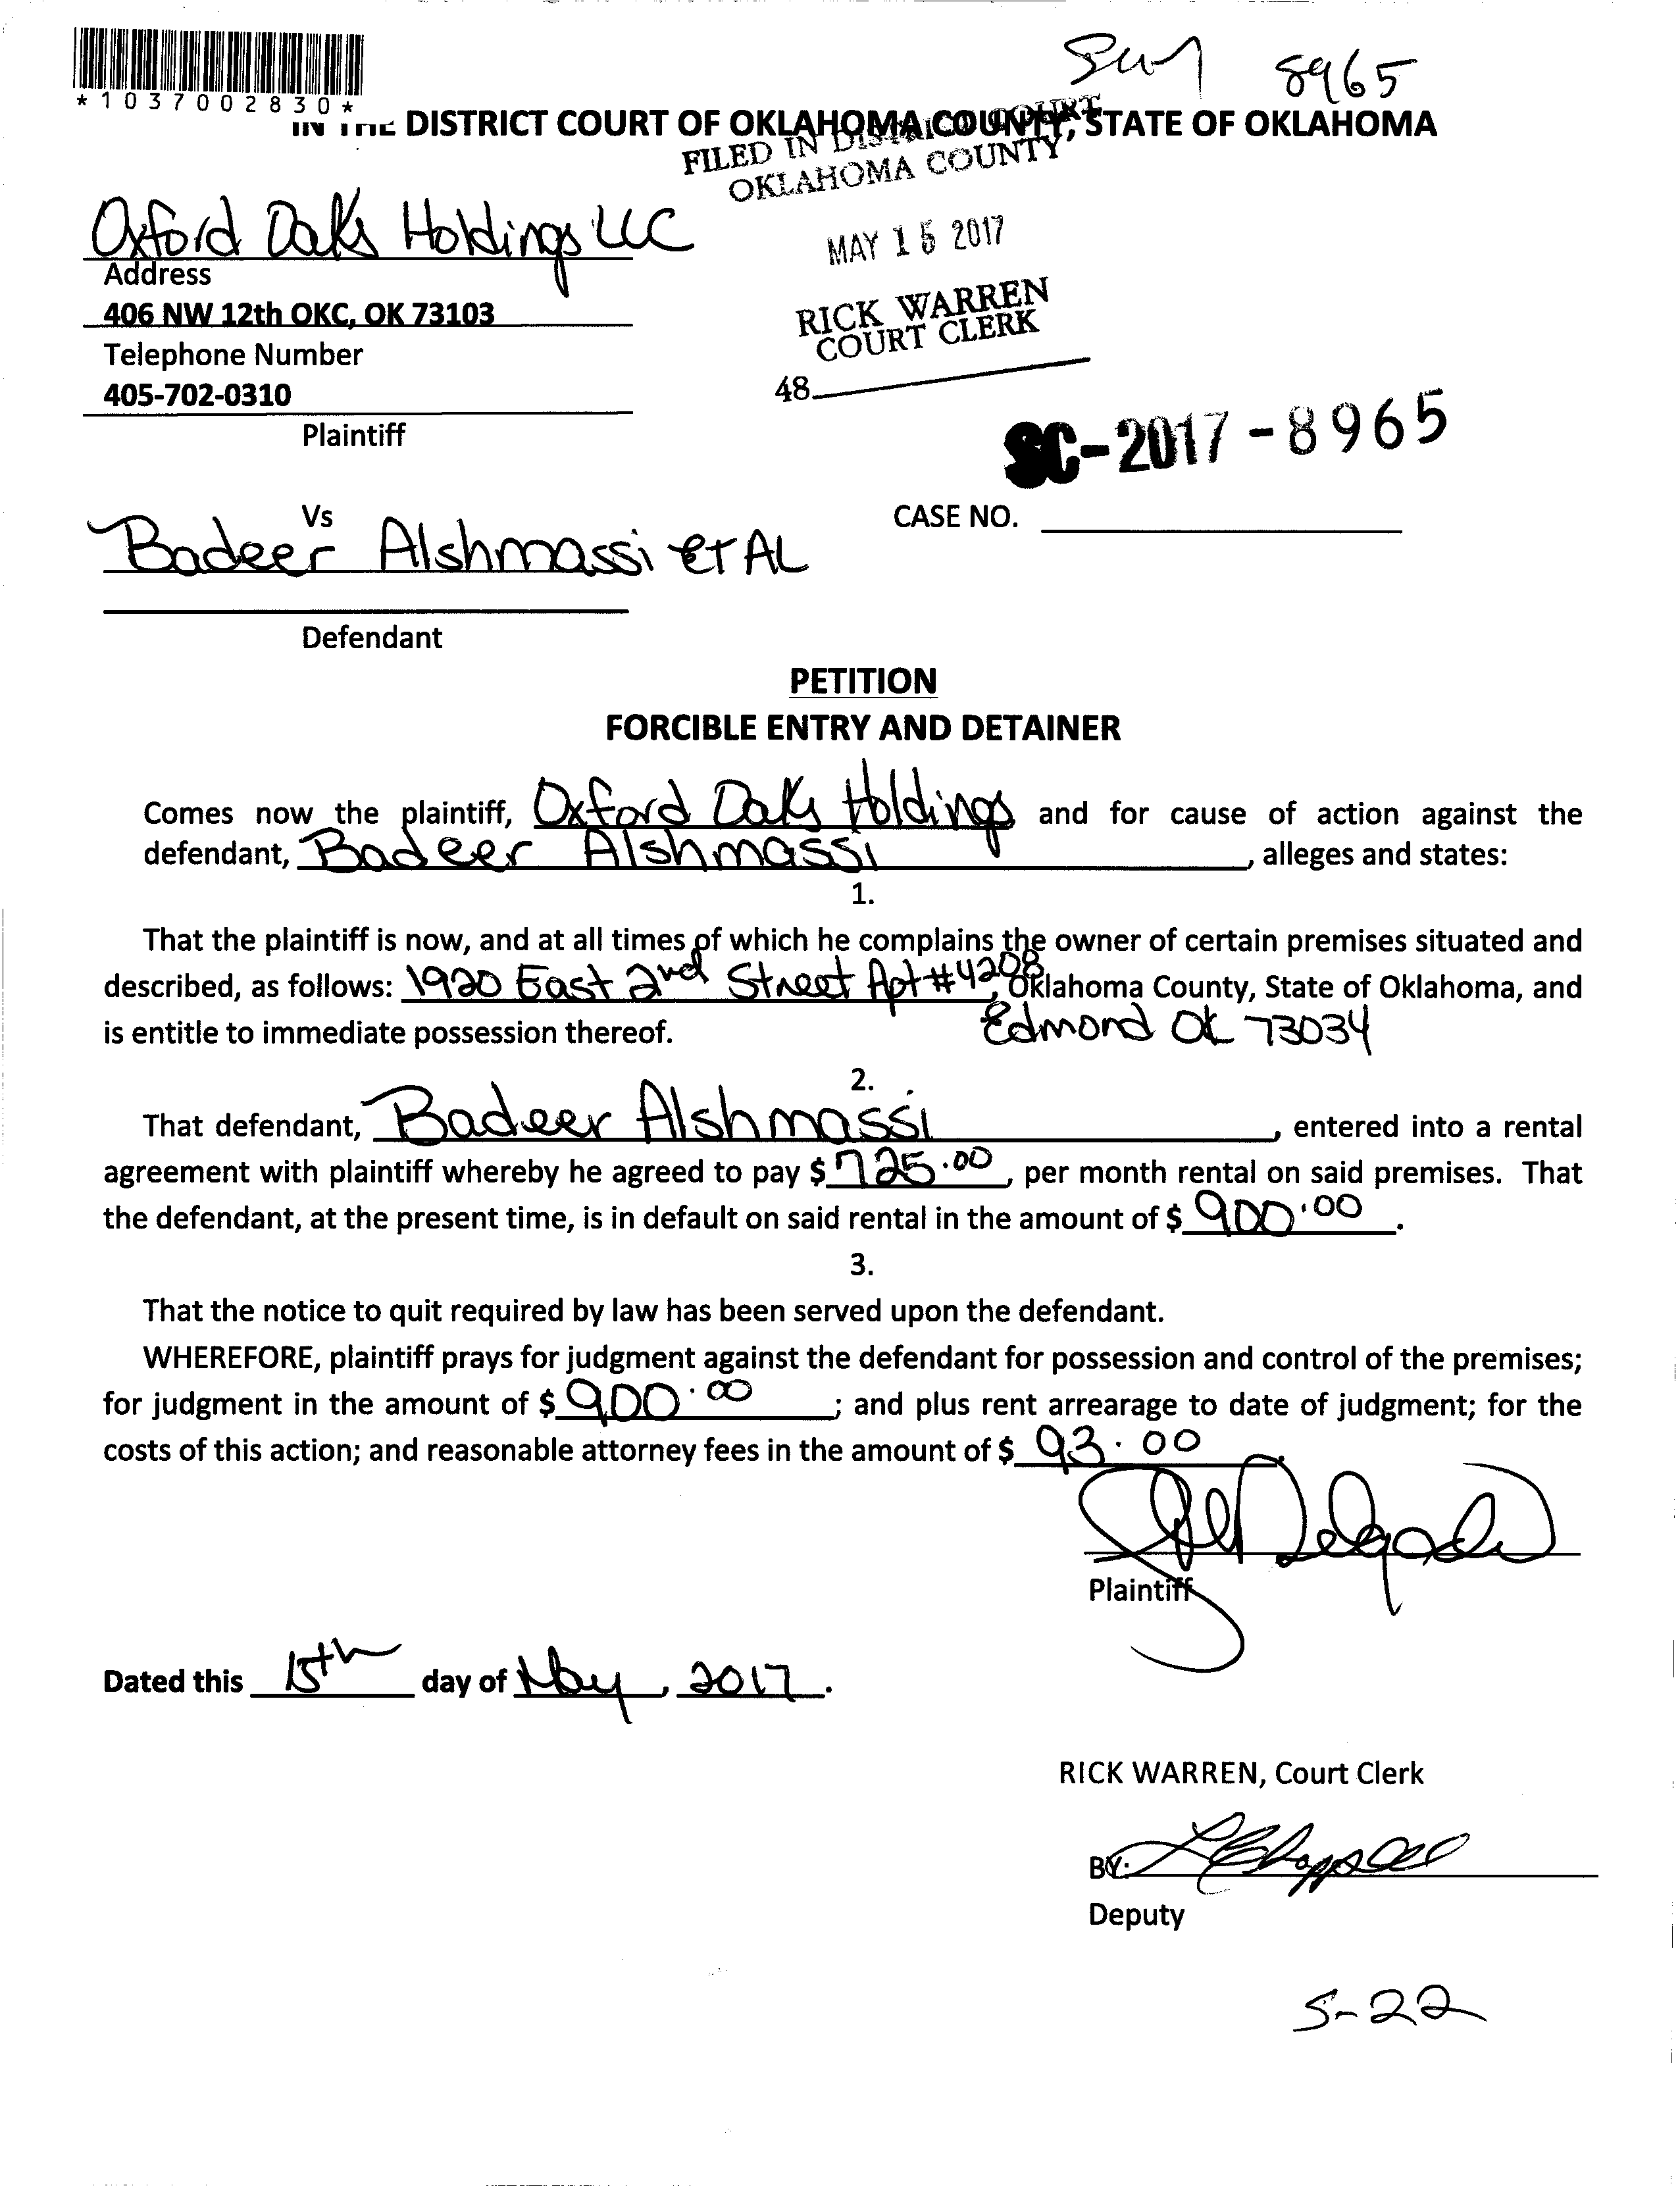 8965
*1037002830*
IN THE DISTRICT COURT OF OKLAHOMA COUNTY, STATE OF OKLAHOMA
FILED IN DISTRICT COURT
OKLAHOMA COUNTY
Oxford Oaks Holdings LLC
MAY 15 2017
Address
406 NW 12th OKC, OK 73103
RICK WARREN
COURT CLERK
Telephone Number
405-702-0310
48
Plaintiff
SC-2017-8965
Vs
CASE NO.
Badeer Alshmassi et AL
Defendant
PETITION
FORCIBLE ENTRY AND DETAINER
Comes now the plaintiff, Oxford Oaks Holdings and for cause of action against the
defendant, Badeer Alshmassi, alleges and states:
1.
That the plaintiff is now, and at all times of which he complains the owner of certain premises situated and
described, as follows: 1920 East 2nd Street Apt #4208, Oklahoma County, State of Oklahoma, and
is entitle to immediate possession thereof. Edmond OK 73034
2.
That defendant, Badeer Alshmassi, entered into a rental
agreement with plaintiff whereby he agreed to pay $ 725.00, per month rental on said premises. That
the defendant, at the present time, is in default on said rental in the amount of $ 900.00.
3.
That the notice to quit required by law has been served upon the defendant.
WHEREFORE, plaintiff prays for judgment against the defendant for possession and control of the premises;
for judgment in the amount of $ 900.00; and plus rent arrearage to date of judgment; for the
costs of this action; and reasonable attorney fees in the amount of $ 93.00.
Delgado
Plaintiff
Dated this 15th day of May, 2017.
RICK WARREN, Court Clerk
BY:
Deputy
5-22